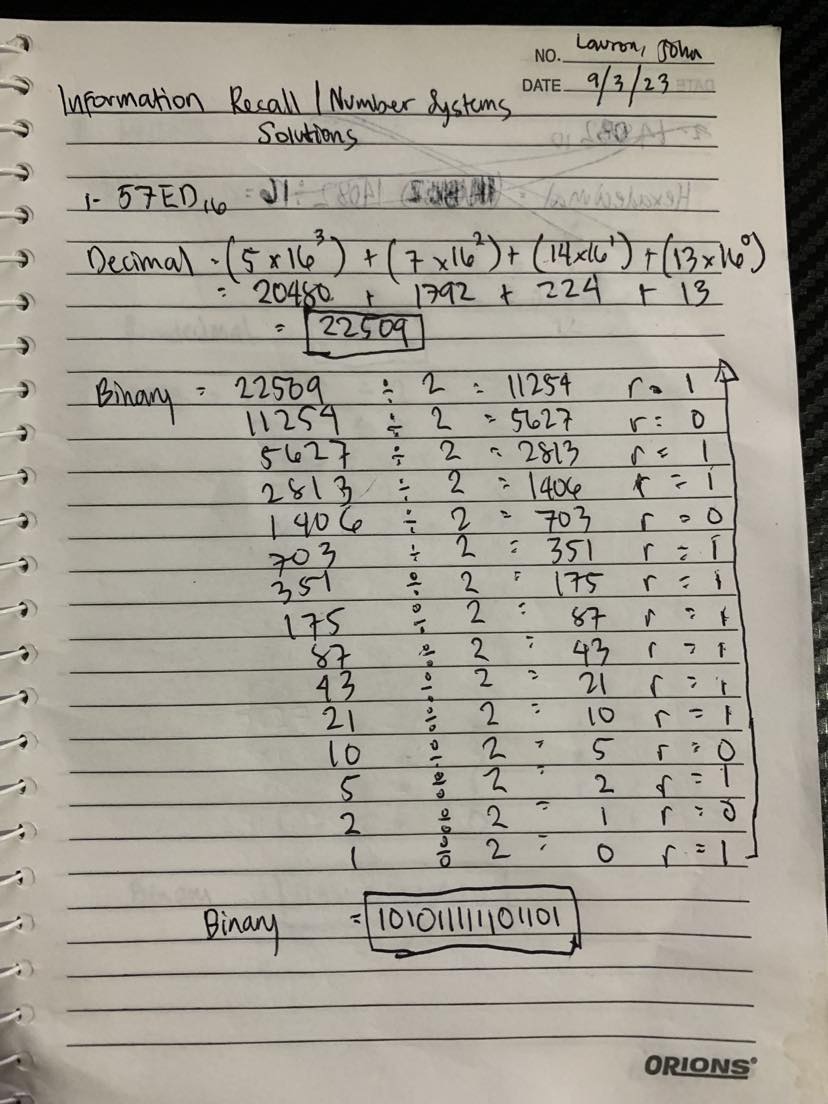 NO. Lauron, John
DATE 9/3/23
Information Recall / Number Systems
Solutions
1- 57ED₁₆ =
Decimal = (5 x 16³) + (7 x 16²) + (14 x 16¹) + (13 x 16⁰)
= 20480 + 1792 + 224 + 13
= 22509
Binary = 22509 ÷ 2 = 11254 r = 1
11254 ÷ 2 = 5627 r = 0
5627 ÷ 2 = 2813 r = 1
2813 ÷ 2 = 1406 r = 1
1406 ÷ 2 = 703 r = 0
703 ÷ 2 = 351 r = 1
351 ÷ 2 = 175 r = 1
175 ÷ 2 = 87 r = 1
87 ÷ 2 = 43 r = 1
43 ÷ 2 = 21 r = 1
21 ÷ 2 = 10 r = 1
10 ÷ 2 = 5 r = 0
5 ÷ 2 = 2 r = 1
2 ÷ 2 = 1 r = 0
1 ÷ 2 = 0 r = 1
Binary = 101011111101101
ORIONS